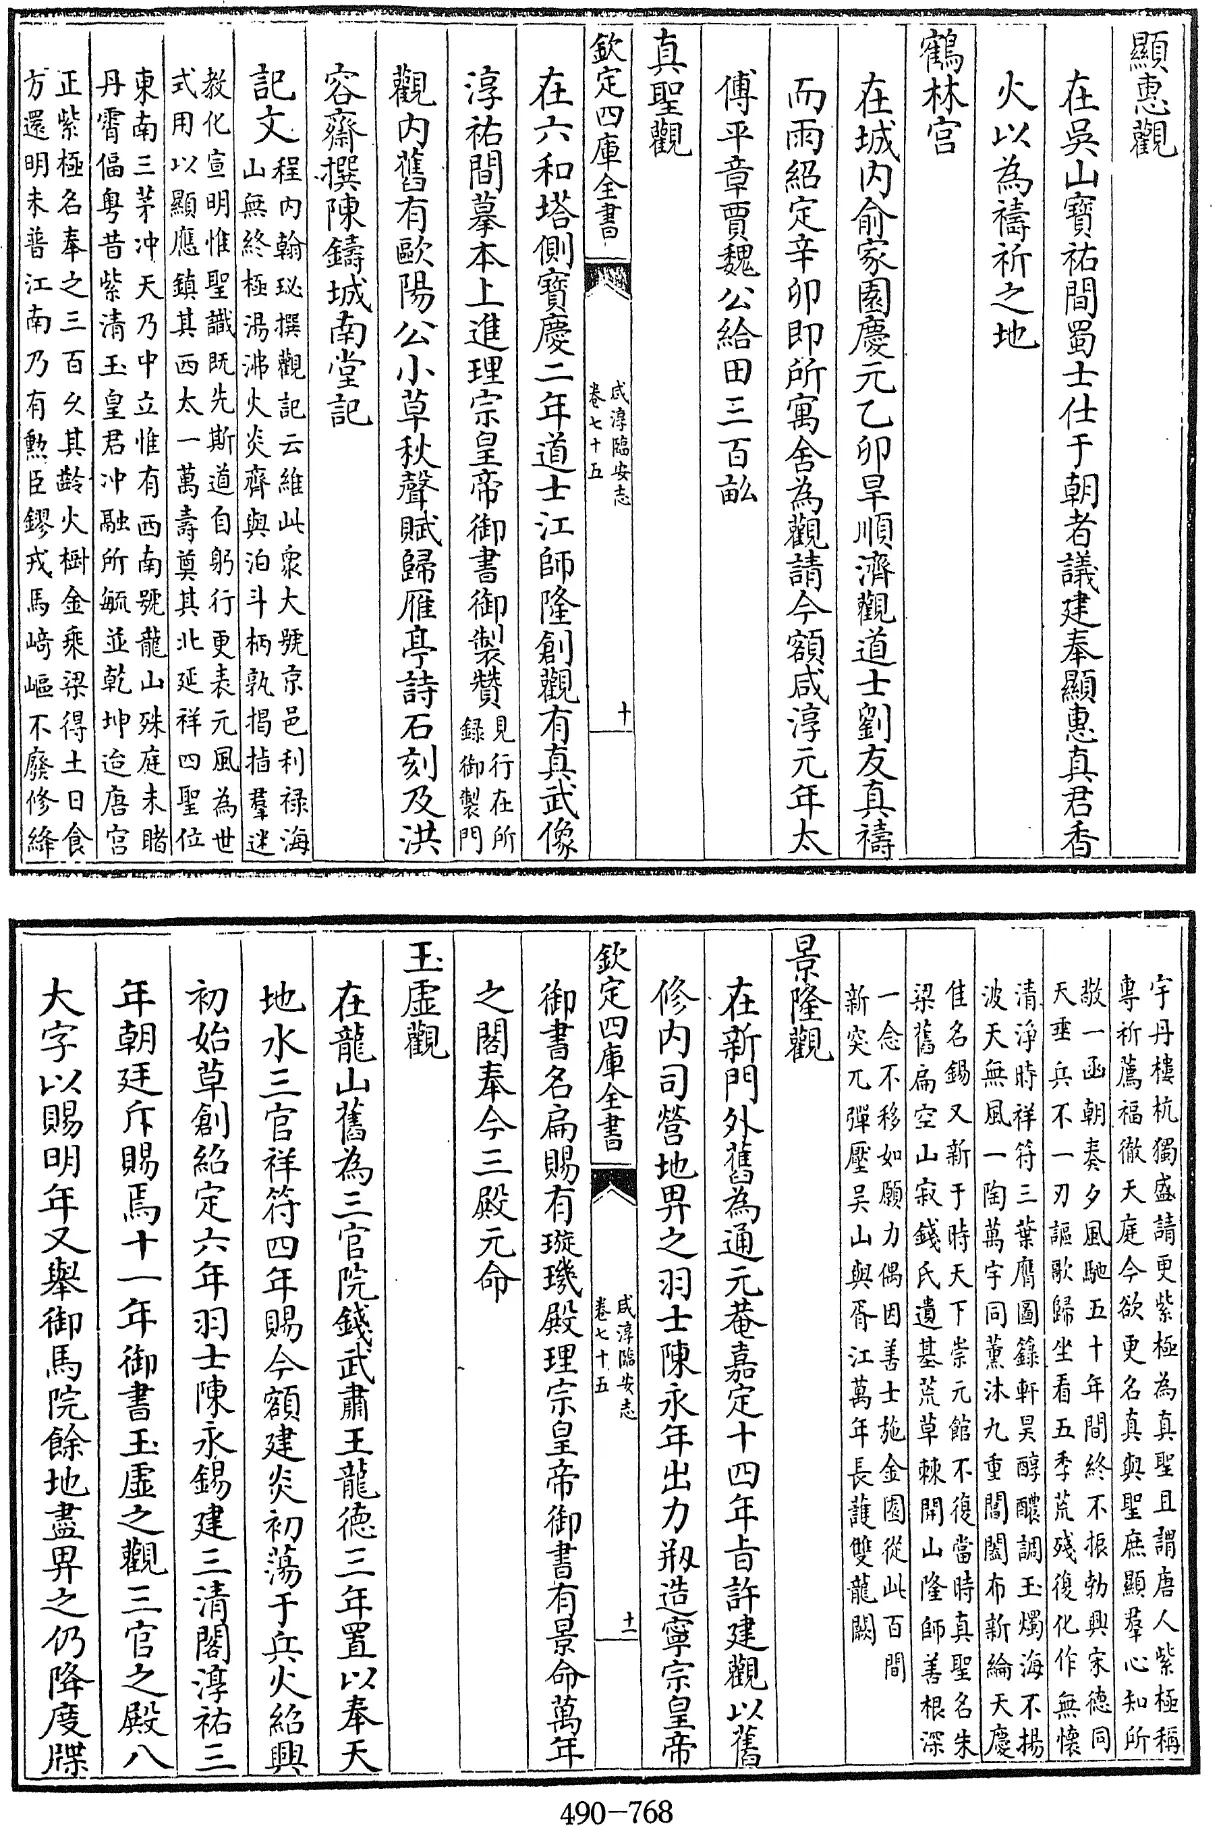 顯惠觀
在吳山寶祐間蜀士仕于朝者議建奉顯惠真君香
火以為禱祈之地
鶴林宫
在城内俞家園慶元乙卯旱順濟觀道士劉友真禱
而雨紹定辛卯即所寓舍為觀請今額咸淳元年太
傅平章賈魏公給田三百畝
真聖觀
欽定四庫全書
咸淳臨安志
卷七十五
十
在六和塔側寶慶二年道士江師隆創觀有真武像
淳祐間摹本上進理宗皇帝御書御製贊
見行在所
録御製門
觀内舊有歐陽公小草秋聲賦歸雁亭詩石刻及洪
容齋撰陳鑄城南堂記
記文
程内翰珌撰觀記云維此衆大號京邑利禄海
山無終極湯沸火炎齊與泊斗柄孰揭指羣迷
教化宣明惟聖識既先斯道自躬行更表元風為世
式用以顯應鎮其西太一萬壽奠其北延祥四聖位
東南三茅冲天乃中立惟有西南號龍山殊庭未睹
丹霄偪粤昔紫清玉皇君冲融所毓並乾坤迨唐宫
正紫極名奉之三百久其齡火樹金乘梁得土日食
方還明未普江南乃有勲臣鏐戎馬﨑嶇不廢修絳
宇丹樓杭獨盛請更紫極為真聖且謂唐人紫極稱
專祈薦福徹天庭今欲更名真與聖庶顯羣心知所
敬一函朝奏夕風馳五十年間終不振勃興宋德同
天垂兵不一刃謳歌歸坐看五季荒殘復化作無懷
清淨時祥符三葉膺圖籙軒昊醇醲調玉燭海不揚
波天無風一陶萬宇同薫沐九重閶闔布新綸天慶
佳名錫又新于時天下崇元館不復當時真聖名朱
梁舊扁空山寂錢氏遺基荒草棘開山隆師善根深
一念不移如願力偶因善士施金園從此百間
新突兀彈壓吴山與胥江萬年長護雙龍闕
景隆觀
在新門外舊為通元菴嘉定十四年㫖許建觀以舊
修内司營地畀之羽士陳永年出力剏造寧宗皇帝
欽定四庫全書
咸淳臨安志
卷七十五
十一
御書名扁賜有璇璣殿理宗皇帝御書有景命萬年
之閣奉今三殿元命
玉虚觀
在龍山舊為三官院錢武肅王龍德三年置以奉天
地水三官祥符四年賜今額建炎初蕩于兵火紹興
初始草創紹定六年羽士陳永錫建三清閣淳祐三
年朝廷斥賜焉十一年御書玉虚之觀三官之殿八
大字以賜明年又舉御馬院餘地盡畀之仍降度牒
490-768